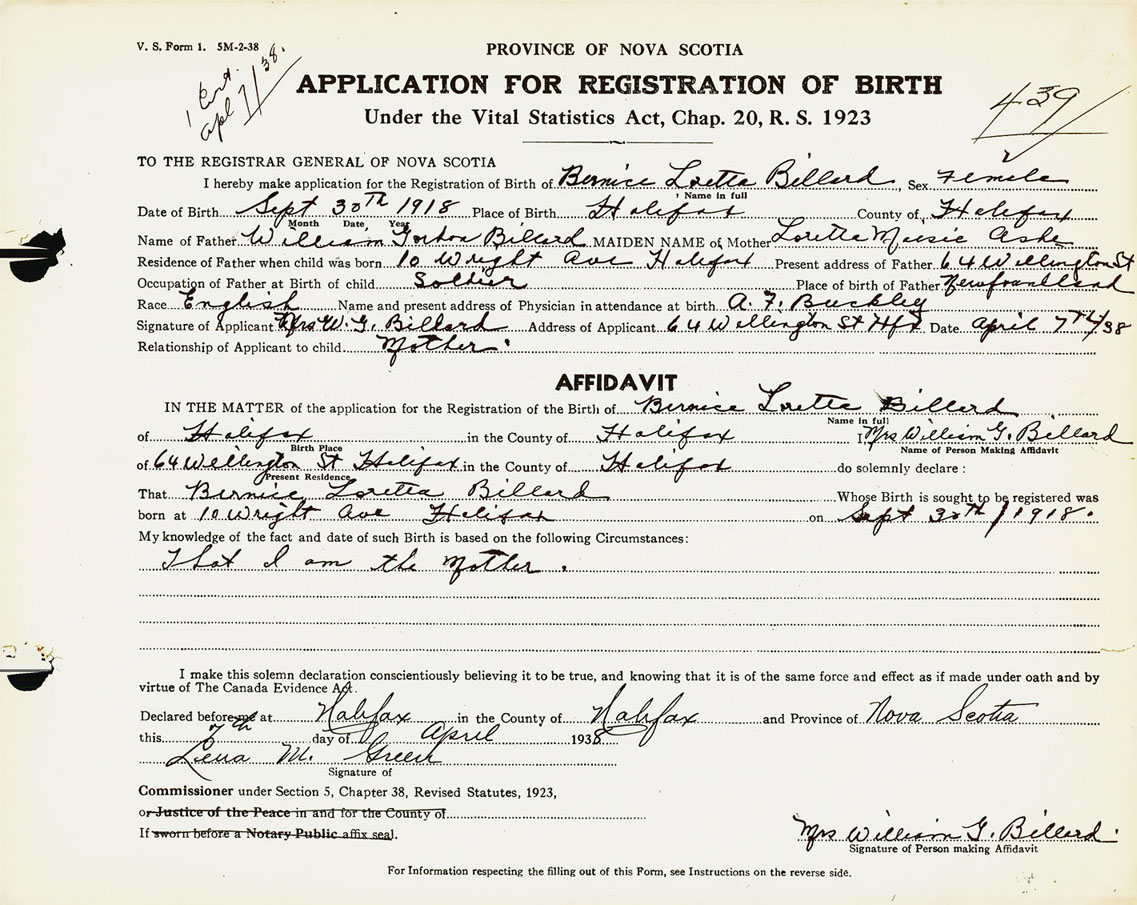 V. S. Form 1. 5M-2-38
1 Cert.
Apl 7/38.
PROVINCE OF NOVA SCOTIA
APPLICATION FOR REGISTRATION OF BIRTH
Under the Vital Statistics Act, Chap. 20, R. S. 1923
439
TO THE REGISTRAR GENERAL OF NOVA SCOTIA
I hereby make application for the Registration of Birth of Bernice Loretta Billard, Sex Female
Name in full
Date of Birth Sept 30th 1918 Place of Birth Halifax County of Halifax
Month Date, Year
Name of Father William Gordon Billard MAIDEN NAME of Mother Loretta Ashe
Residence of Father when child was born 10 Wright Ave Halifax Present address of Father 64 Wellington St
Occupation of Father at Birth of child Soldier Place of birth of Father Newfoundland
Race English Name and present address of Physician in attendance at birth A. F. Buckley
Signature of Applicant Mrs W. G. Billard Address of Applicant 64 Wellington St Hfx Date April 7th/38
Relationship of Applicant to child Mother.
AFFIDAVIT
IN THE MATTER of the application for the Registration of the Birth of Bernice Loretta Billard
Name in full
of Halifax in the County of Halifax I Mrs William G. Billard
Birth Place Name of Person Making Affidavit
of 64 Wellington St Halifax in the County of Halifax do solemnly declare :
Present Residence
That Bernice Loretta Billard Whose Birth is sought to be registered was
born at 10 Wright Ave Halifax on Sept 30th / 1918.
My knowledge of the fact and date of such Birth is based on the following Circumstances:
That I am the Mother.
I make this solemn declaration conscientiously believing it to be true, and knowing that it is of the same force and effect as if made under oath and by
virtue of The Canada Evidence Act.
Declared before me at Halifax in the County of Halifax and Province of Nova Scotia
this 7th day of April 1938
Lena M. Green
Signature of
Commissioner under Section 5, Chapter 38, Revised Statutes, 1923,
or Justice of the Peace in and for the County of
If sworn before a Notary Public affix seal.
Mrs William G. Billard.
Signature of Person making Affidavit
For Information respecting the filling out of this Form, see Instructions on the reverse side.